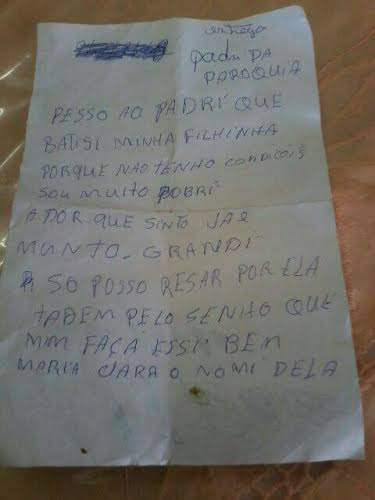 entrego
padri DA
PAROQUIA
PESSO AO PADRI QUE
BATISI MINHA FILHINHA
PORQUE NÃO TENHO CONDICÕIS
SOU MUITO POBRI
A DOR QUE SINTO JA E
MUNTO. GRANDI
SO POSSO RESAR POR ELA
TADEM PELO SENHO QUE
MIM FAÇA ESSI BEM
MARIA CLARA O NOMI DELA